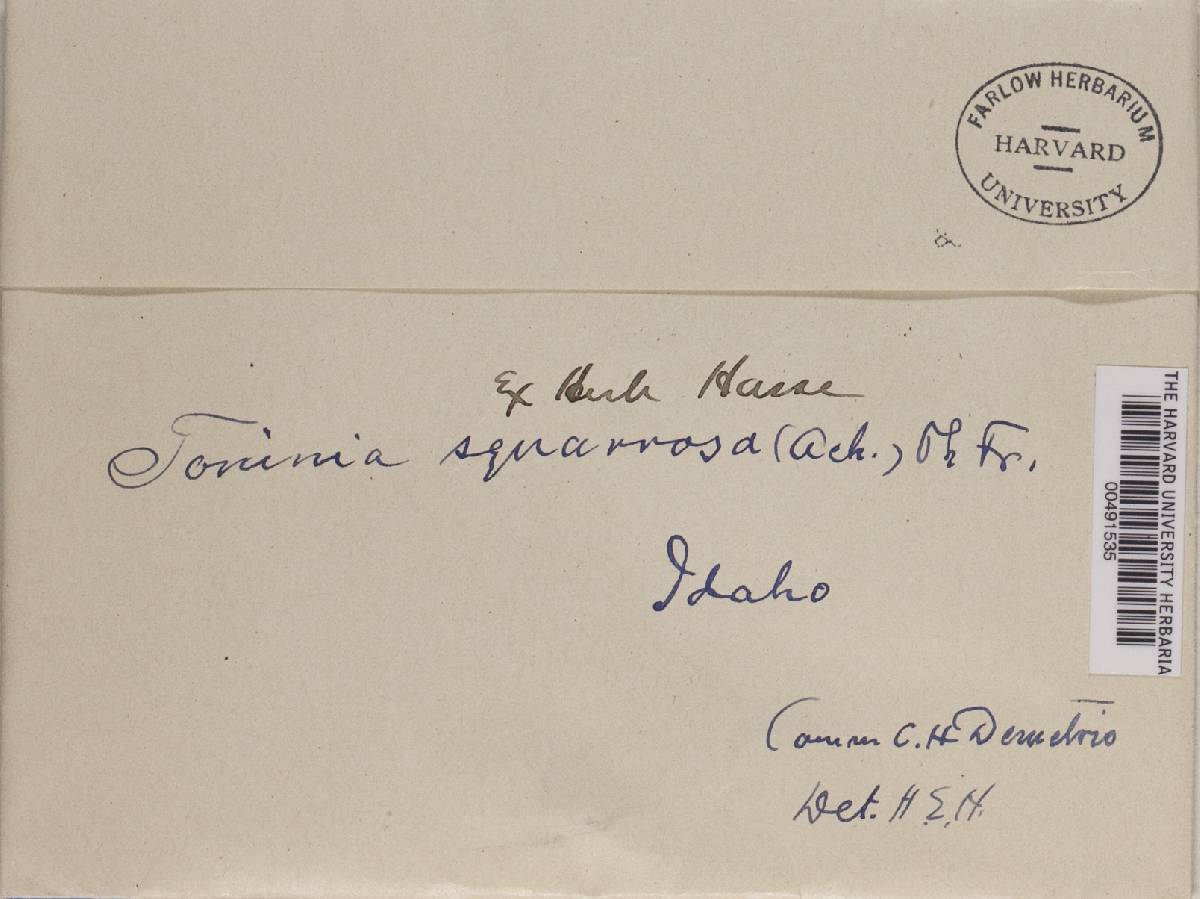 FARLOW HERBARIUM
HARVARD
UNIVERSITY
Ex Herb Hasse
Toninia squarrosa (Ach.) Th Fr.
Idaho
Comm C. H Demetrio
Det. H E. H.
THE HARVARD UNIVERSITY HERBARIA
00491535